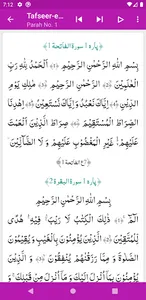 7:12
Tafseer-e...
Parah No. 1
﴿پارہ ١ سورة الفاتحة ١﴾
بِسْمِ اللّٰهِ الرَّحْمٰنِ الرَّحِيْمِ ﴿1﴾ اَلْحَمْدُ لِلّٰهِ رَبِّ
الْعٰلَمِيْنَ ﴿2﴾ الرَّحْمٰنِ الرَّحِيْمِ ﴿3﴾ مٰلِكِ يَوْمِ
الدِّيْنِ ﴿4﴾ اِيَّاكَ نَعْبُدُ وَاِيَّاكَ نَسْتَعِيْنُ ﴿5﴾ اِهْدِنَا
الصِّرَاطَ الْمُسْتَقِيْمَ ﴿6﴾ صِرَاطَ الَّذِيْنَ اَنْعَمْتَ
عَلَيْهِمْ غَيْرِ الْمَغْضُوْبِ عَلَيْهِمْ وَلَا الضَّآلِّيْنَ
﴿پارہ ١ سورة البقرة 2﴾
بِسْمِ اللّٰهِ الرَّحْمٰنِ الرَّحِيْمِ
الٓمّٓ ﴿١﴾ ذٰلِكَ الْكِتٰبُ لَا رَيْبَ فِيْهِ هُدًى
لِّلْمُتَّقِيْنَ ﴿2﴾ الَّذِيْنَ يُؤْمِنُوْنَ بِالْغَيْبِ وَيُقِيْمُوْنَ
الصَّلٰوةَ وَمِمَّا رَزَقْنٰهُمْ يُنْفِقُوْنَ ﴿3﴾ وَالَّذِيْنَ
يُؤْمِنُوْنَ بِمَآ اُنْزِلَ اِلَيْكَ وَمَآ اُنْزِلَ مِنْ قَبْلِكَ وَ